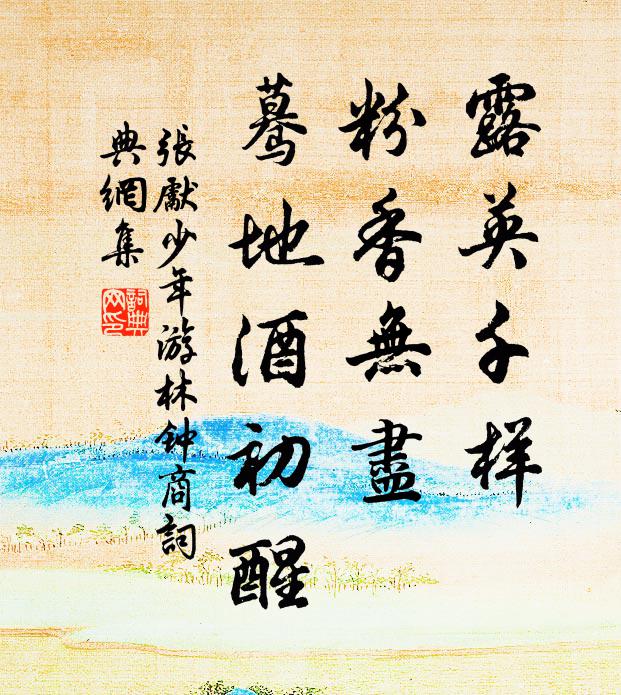 露英千样
粉香無盡
蓦地酒初醒
張獻少年游林钟商詞
典網集
詞典网印